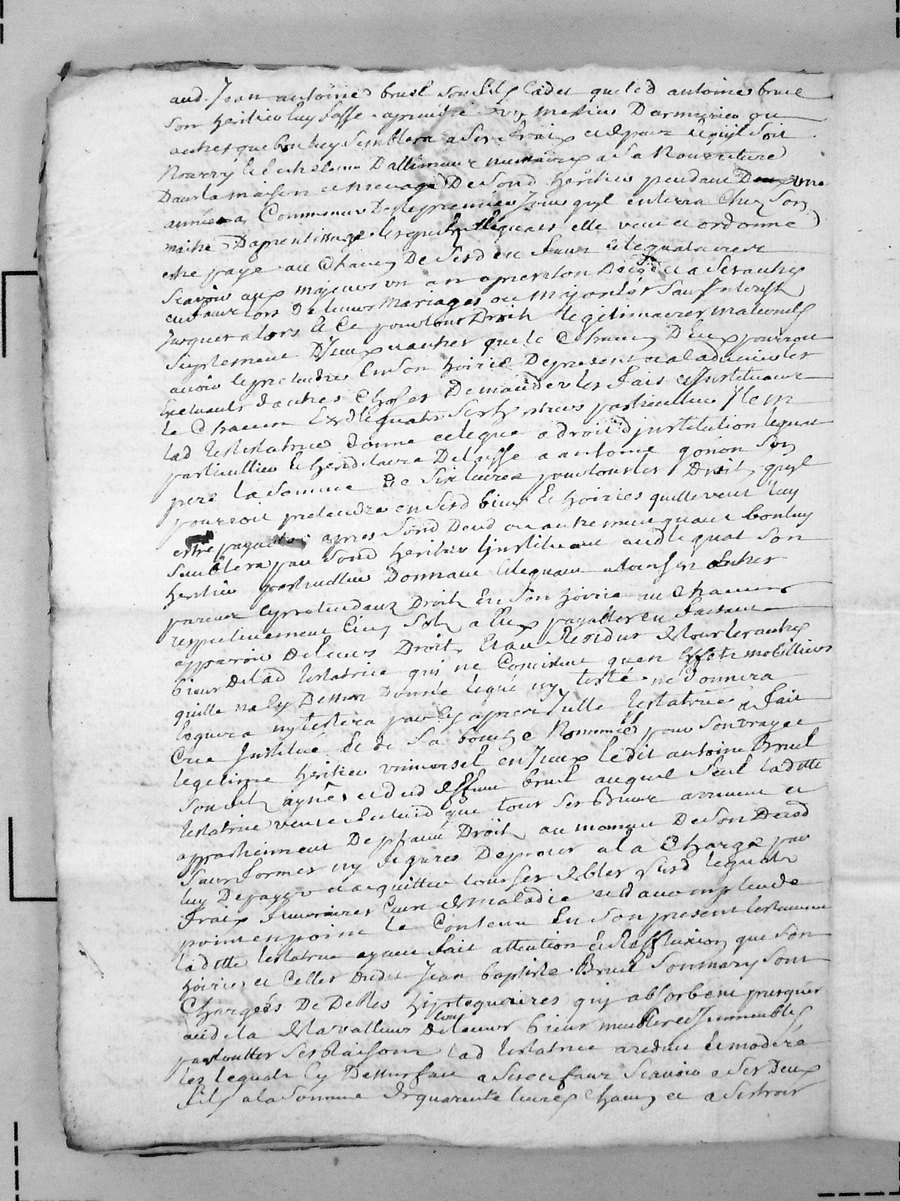 aud. Jean antoine bruel son fils Cadet que led antoine bruel
son heritier luy fasse aprendre un metier D'armurier ou
autre que bon luy semblera a ses fraix et
Nourry et D'alliments a sa Nourriture
Dans la maison et menage De sond heritier pendant Deux une
année a Commencer Des le premier Jour quil entrera Chez son
maitre D'aprentissage lesquels legats elle veut et ordonne
etre payé au Chacun De sesd enfans et legataires
scavoir aux majeurs un an apres son Deces et a ses autres
enfans lors de leurs Mariages ou majorités sans interest
Jusques alors Et Ce pour tous Droits legitimaires maternels
suplement D'iceux et autres que le Chacun D'eux pourront
avoir et pretendre En son hoirie De present et a l'advenir
d'autres Choses Demander les fait et Instituant
le Chacun Esd legats ses heritiers particuliers Item
lad testatrice donne et legue a droit d'institution
particulliere et hereditaire Delaisse a antoine gonon son
pere la somme De six livres pour tous les Droits quil
pourroit pretendre en sesd biens Et hoiries quelle veut luy
etre payables apres sond Deced ou autrement quand bon luy
semblera par sond heritier L'instituant aud legat son
heritier particulier Donnant et leguant a tous ses autres
parens et pretendant Droit En son hoirie au Chacun
respectivement Cinq sols a Eux payables en faisant
apparoir De leurs Droits Et au Residu De tous les autres
biens De lad testatrice qui ne Consistent quen Effets mobilliers
quelle na Cy Dessus Donné legué ny testé ne Donnera
leguera ny testera par Cy apres Icelle testatrice a fait
Créé Institué Et de Sa bouche Nommé pour son vray et
legitime heritier universel en Iceux ledit antoine Bruel
son fils ayné et dud deffunt bruel auquel seul laditte
testatrice veut et Entend que tous ses Biens arrivent et
appartiennent De plein Droit au moment De son Deced
sans formes ny figures De proces a la Charge par
luy De payer et acquitter tous ses debtes susd legats
fraix funeraires Cure De maladie et d'accomplir de
point en point le Contenu En son present testament
laditte testatrice ayant fait attention et Reffluxion que son
hoirie et Celles Dudit Jean baptiste Bruel son mary sont
Chargées De Debtes hipotequaires qui absorbent presques
aud la De la valleur De leurs biens meubles et Immeubles
par toutes Ses Raisons lad testatrice a reduit et moderé
les legats Cy Dessus fait a ses enfans Scavoir a ses Deux
fils a la somme De quarente livres Chacun et a ses trois